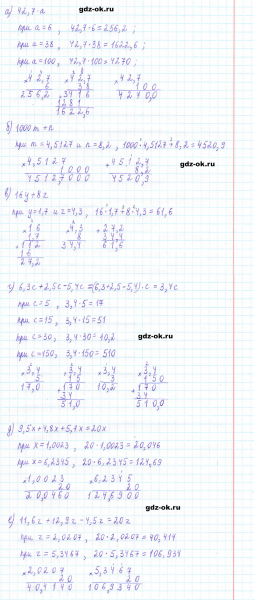 а) 42,7·a
при a=6, 42,7·6=256,2;
при a=38, 42,7·38=1622,6;
при a=100, 42,7·100=4270;
gdz-ok.ru
×42,7 ×42,7 ×42,7
6 38 100
256,2 3416 4270,0
1281
1622,6
б) 1000m+n
gdz-ok.ru
при m=4,5127 и n=8,2, 1000·4,5127+8,2=4520,9
×4,5127 +4512,7
1000 8,2
4512,7000 4520,9
в) 16y+8z
gdz-ok.ru
при y=1,7 и z=4,3, 16·1,7+8·4,3=61,6
×16 ×4,3 +27,2
1,7 8 34,4
+112 34,4 61,6
16
27,2
gdz-ok.ru
г) 6,3c+2,5c-5,4c=(6,3+2,5-5,4)·c=3,4c
при c=5, 3,4·5=17
gdz-ok.ru
при c=15, 3,4·15=51
при c=30, 3,4·30=10,2
при c=150, 3,4·150=510
×3,4 ×3,4 ×3,4 ×3,4
5 15 3 150
17,0 +170 10,2 +170
34 34
51,0 510,0
gdz-ok.ru
д) 9,5x+4,8x+5,7x=20x
при x=1,0023, 20·1,0023=20,046
при x=6,2345, 20·6,2345=124,69
gdz-ok.ru
×1,0023 ×6,2345
20 20
20,0460 124,6900
е) 11,6z+12,9z-4,5z=20z
gdz-ok.ru
при z=2,0207, 20·2,0207=40,414
при z=5,3467, 20·5,3467=106,934
×2,0207 ×5,3467
20 20
40,4140 106,9340
gdz-ok.ru